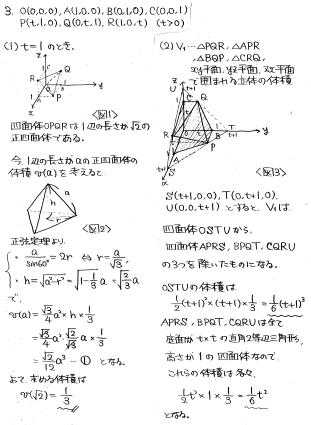 3. O(0,0,0), A(1,0,0), B(0,1,0), C(0,0,1)
P(t,1,0), Q(0,t,1), R(1,0,t) (t>0)
(1) t=1 のとき,
<図1>
四面体OPQRは1辺の長さが√2の
正四面体である。
今, 1辺の長さがaの正四面体の
体積 v(a) を考えると
<図2>
正弦定理より,
a/sin60° = 2r ⇔ r = a/√3,
h = √(a²-r²) = √(1-1/3) a = √(2/3) a
で,
v(a) = √3/4 a² × h × 1/3
= √3/4 a² · √2/√3 a × 1/3
= √2/12 a³ ―① となる。
よって, 求める体積は
v(√2) = 1/3
(2) V₁… △PQR, △APR
, △BQP, △CRQ,
xy平面, yz平面, zx平面
で囲まれる立体の体積
<図3>
S(t+1,0,0), T(0,t+1,0),
U(0,0,t+1) とすると V₁は
四面体OSTUから,
四面体APRS, BPQT, CQRU
の3つを除いたものになる。
OSTUの体積は
1/2(t+1)² × (t+1) × 1/3 = 1/6(t+1)³
APRS, BPQT, CQRUは全て
底面が t×t の直角2等辺三角形,
高さが 1 の四面体なので
これらの体積は各々,
1/2 t² × 1 × 1/3 = 1/6 t²
となる。